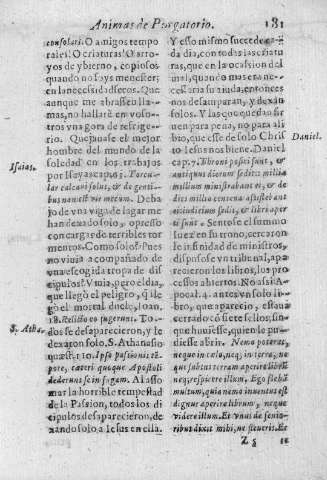 Animas de Purgatorio. 181
consolari. O amigos tempo
rales! O criaturas! O arro
yos de ybierno, copiosos
quando no ays menester;
en la necessidad secos. Que
aunque me abrasse en lla-
mas, no hallaré en vosotros
vna gota de refrige-
rio. Quejauase el mejor
hombre del mundo de la
soledad en los trabajos
por Isayas cap. 63. Torcu-
lar calcaui solus, & de genti-
bus non est vir mecum. Deba
jo de vna viga de lagar me
han dexado solo, opresso
con cargas de terribles tor
mentos. Como solo? Pues
no iuuia acompañado de
vna escogida tropa de dis
cipulos? Viuia, pero el dia,
que llegò el peligro, q̃ le
en el mortal duelo, Ioan.
18. Relicto eo fugerunt. To-
dos se desaparecieron, y le
dexaron solo. S. Athanasio
quæst. 110. Ipso passionis tẽ-
pore, cæteri quoque Apostoli
dederunt se in fugam. Al asso
mar la horrible tempestad
de la Passion, todos los di
cipulos desaparecieron, de
xando solo a Iesus en ella.
Isaias.
S. Atha.
Y esso mismo sucede ca-
da dia, con todas las criatu
ras, que en la ocasion del
mal, quando no es mene-
ster para su ayuda, entonces
nos desamparan, y dexan
solos. Y las que quedan si
ruen para pena, no para ali
bio, que esse de solo Chris
to Iesus nos biene. Daniel
cap. 7. Throni positi sunt, &
antiquus dierum sedit: millia
millium ministrabant ei, & de
cies millies centena assistebant
ei: iudicium sedit, & libri aper
ti sunt. Sentose el summo
juez en su trono, cercaron
le infinidad de ministros,
dispusose vn tribunal, apa
recieron los libros, los pro
cessos abiertos. No assi A-
pocal. 4. antes vn solo li-
bro, que aparecio, estaua
cerrado cõ siete sellos; sin
que huuiesse, quien le pu-
diesse abrir. Nemo poterat,
neque in cælo, neq; in terra, ne
que subtus terram aperire librũ
neq; respicere illum. Ego flebã
multum, quia nemo inuentus est
dignus aperire librum, neque
videre illum. Et vnus de senio-
ribus dixit mihi, ne fleueris. Et
Daniel.
Z 5 se